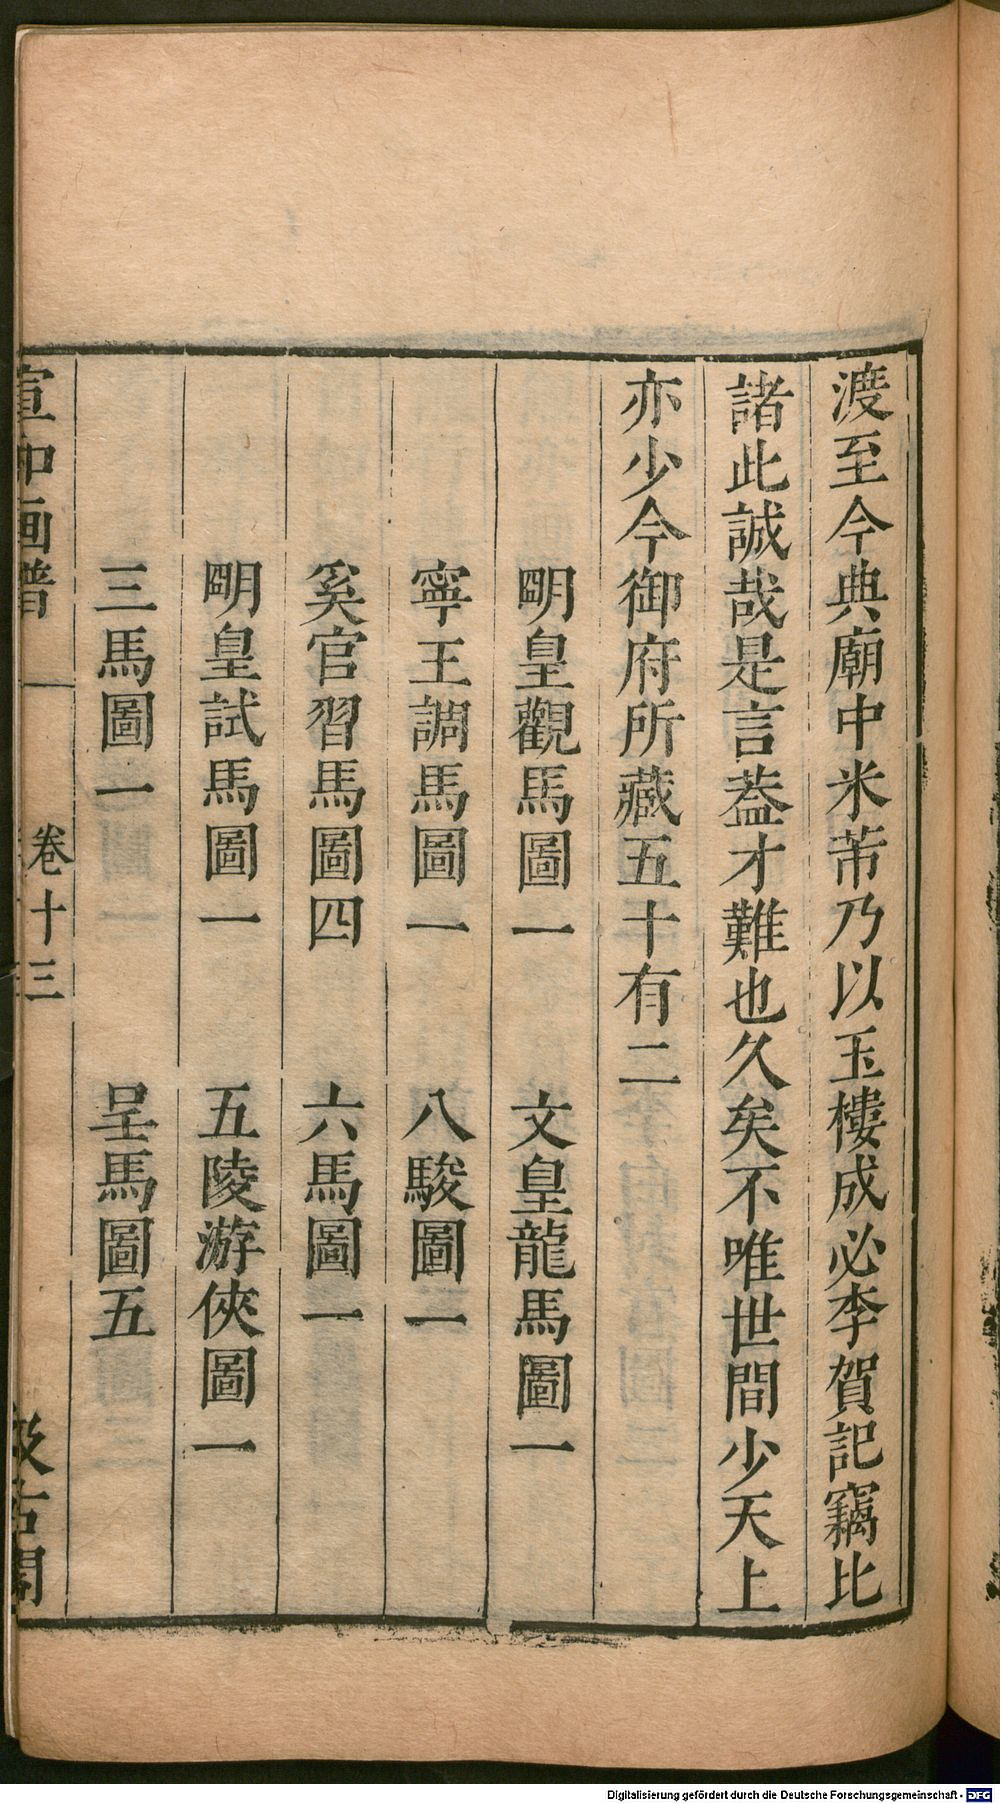 渡至今典廟中米芾乃以玉樓成必李賀記竊比
諸此誠哉是言葢才難也久矣不唯世間少天上
亦少今御府所藏五十有二
明皇觀馬圖一　文皇龍馬圖一
寧王調馬圖一　八駿圖一
奚官習馬圖四　六馬圖一
明皇試馬圖一　五陵游俠圖一
三馬圖一　呈馬圖五
宣和画譜　卷十三　汲古閣
Digitalisierung gefördert durch die Deutsche Forschungsgemeinschaft - DFG